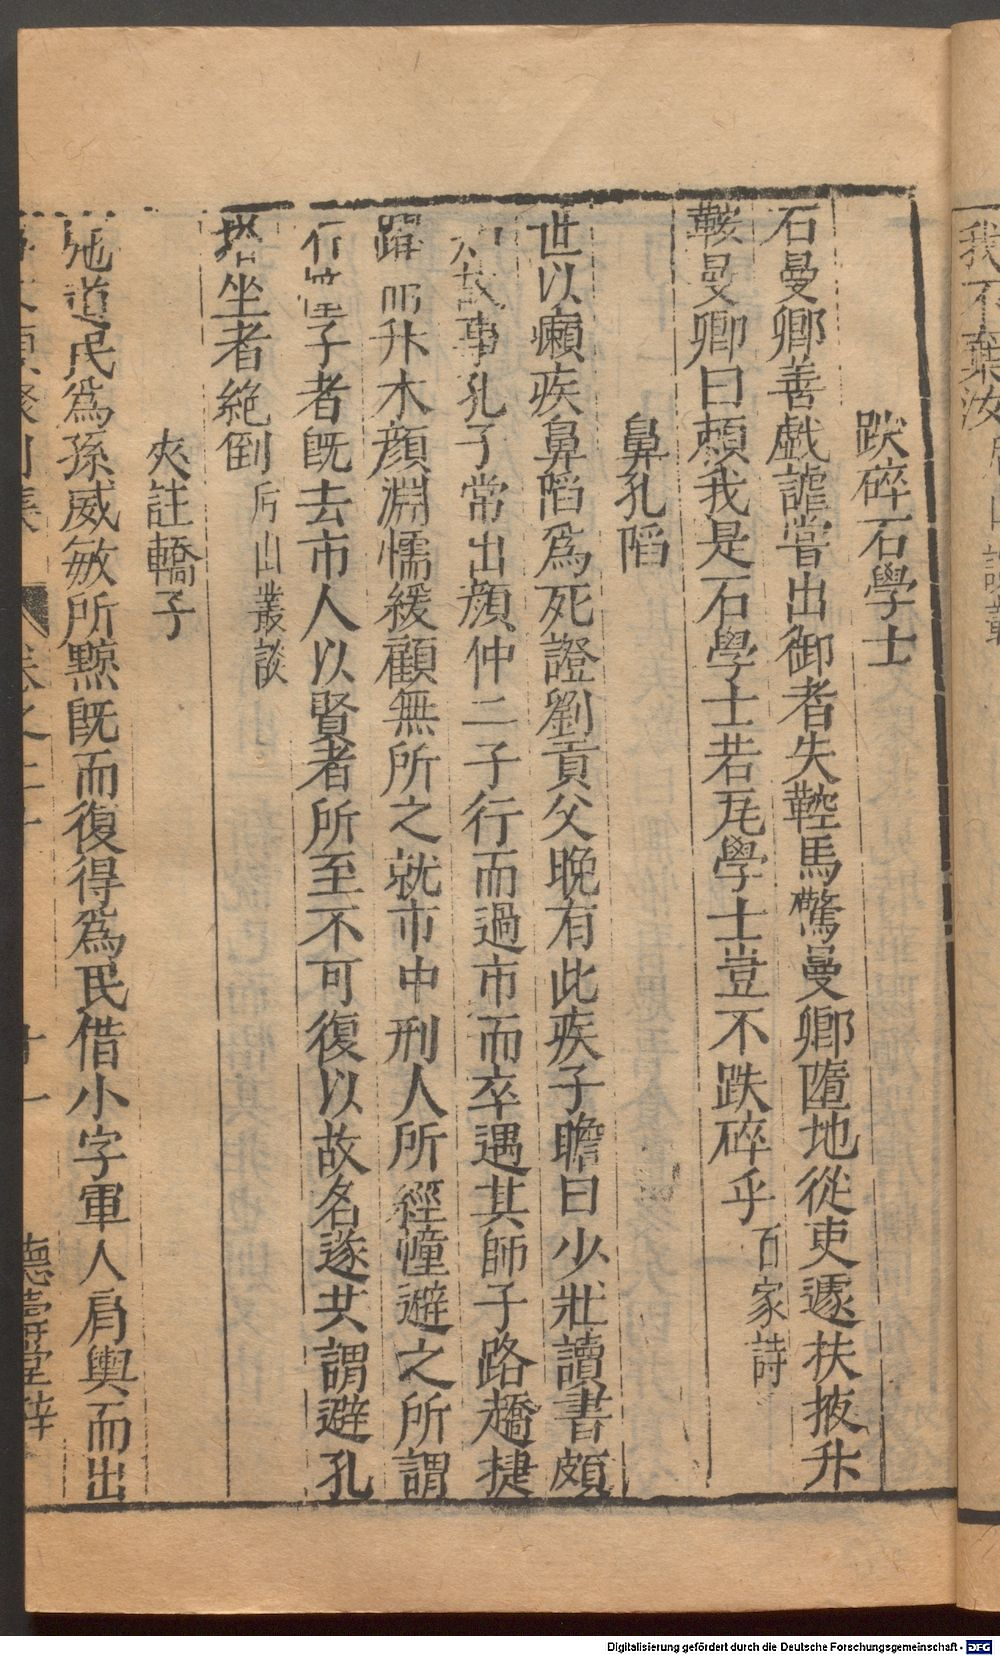 我不棄汝
跌碎石學士
石曼卿善戲謔嘗出御者失鞚馬驚曼卿墮地從吏遽扶掖升
鞍曼卿曰頼我是石學士若瓦學士豈不跌碎乎百家詩
鼻孔陷
世以癩疾鼻陷爲死證劉貢父晚有此疾子瞻曰少壯讀書頗
知故事孔子常出顔仲二子行而過市而卒遇其師子路趫捷
躍而升木顔淵懦緩顧無所之就市中刑人所經幢避之所謂
石幢子者旣去市人以賢者所至不可復以故名遂共謂避孔
塔坐者絶倒后山叢談
夾註轎子
尨道民爲孫威敏所黥旣而復得爲民借小字軍人肩輿而出
卷之二十 廿一 德壽堂梓
Digitalisierung gefördert durch die Deutsche Forschungsgemeinschaft - DFG